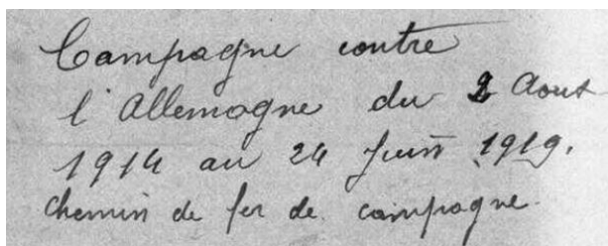 Campagne contre
l'Allemagne du 2 Aout
1914 au 24 Juin 1919.
Chemin de fer de campagne.